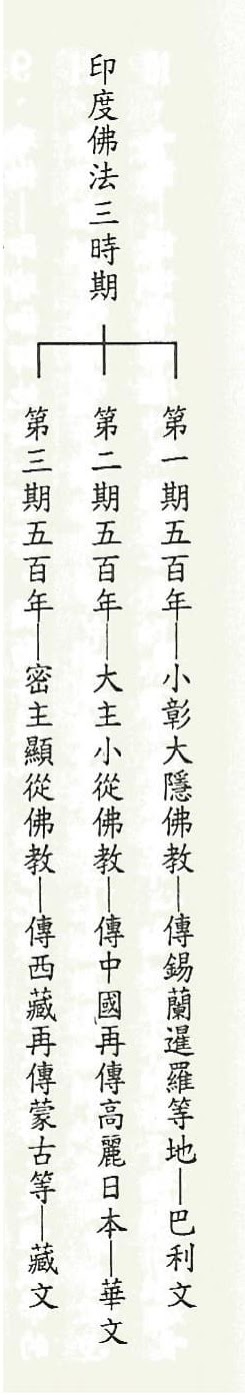 印度佛法三時期
第一期五百年—小彰大隱佛教—傳錫蘭暹羅等地—巴利文
第二期五百年—大主小從佛教—傳中國再傳高麗日本—華文
第三期五百年—密主顯從佛教—傳西藏再傳蒙古等—藏文